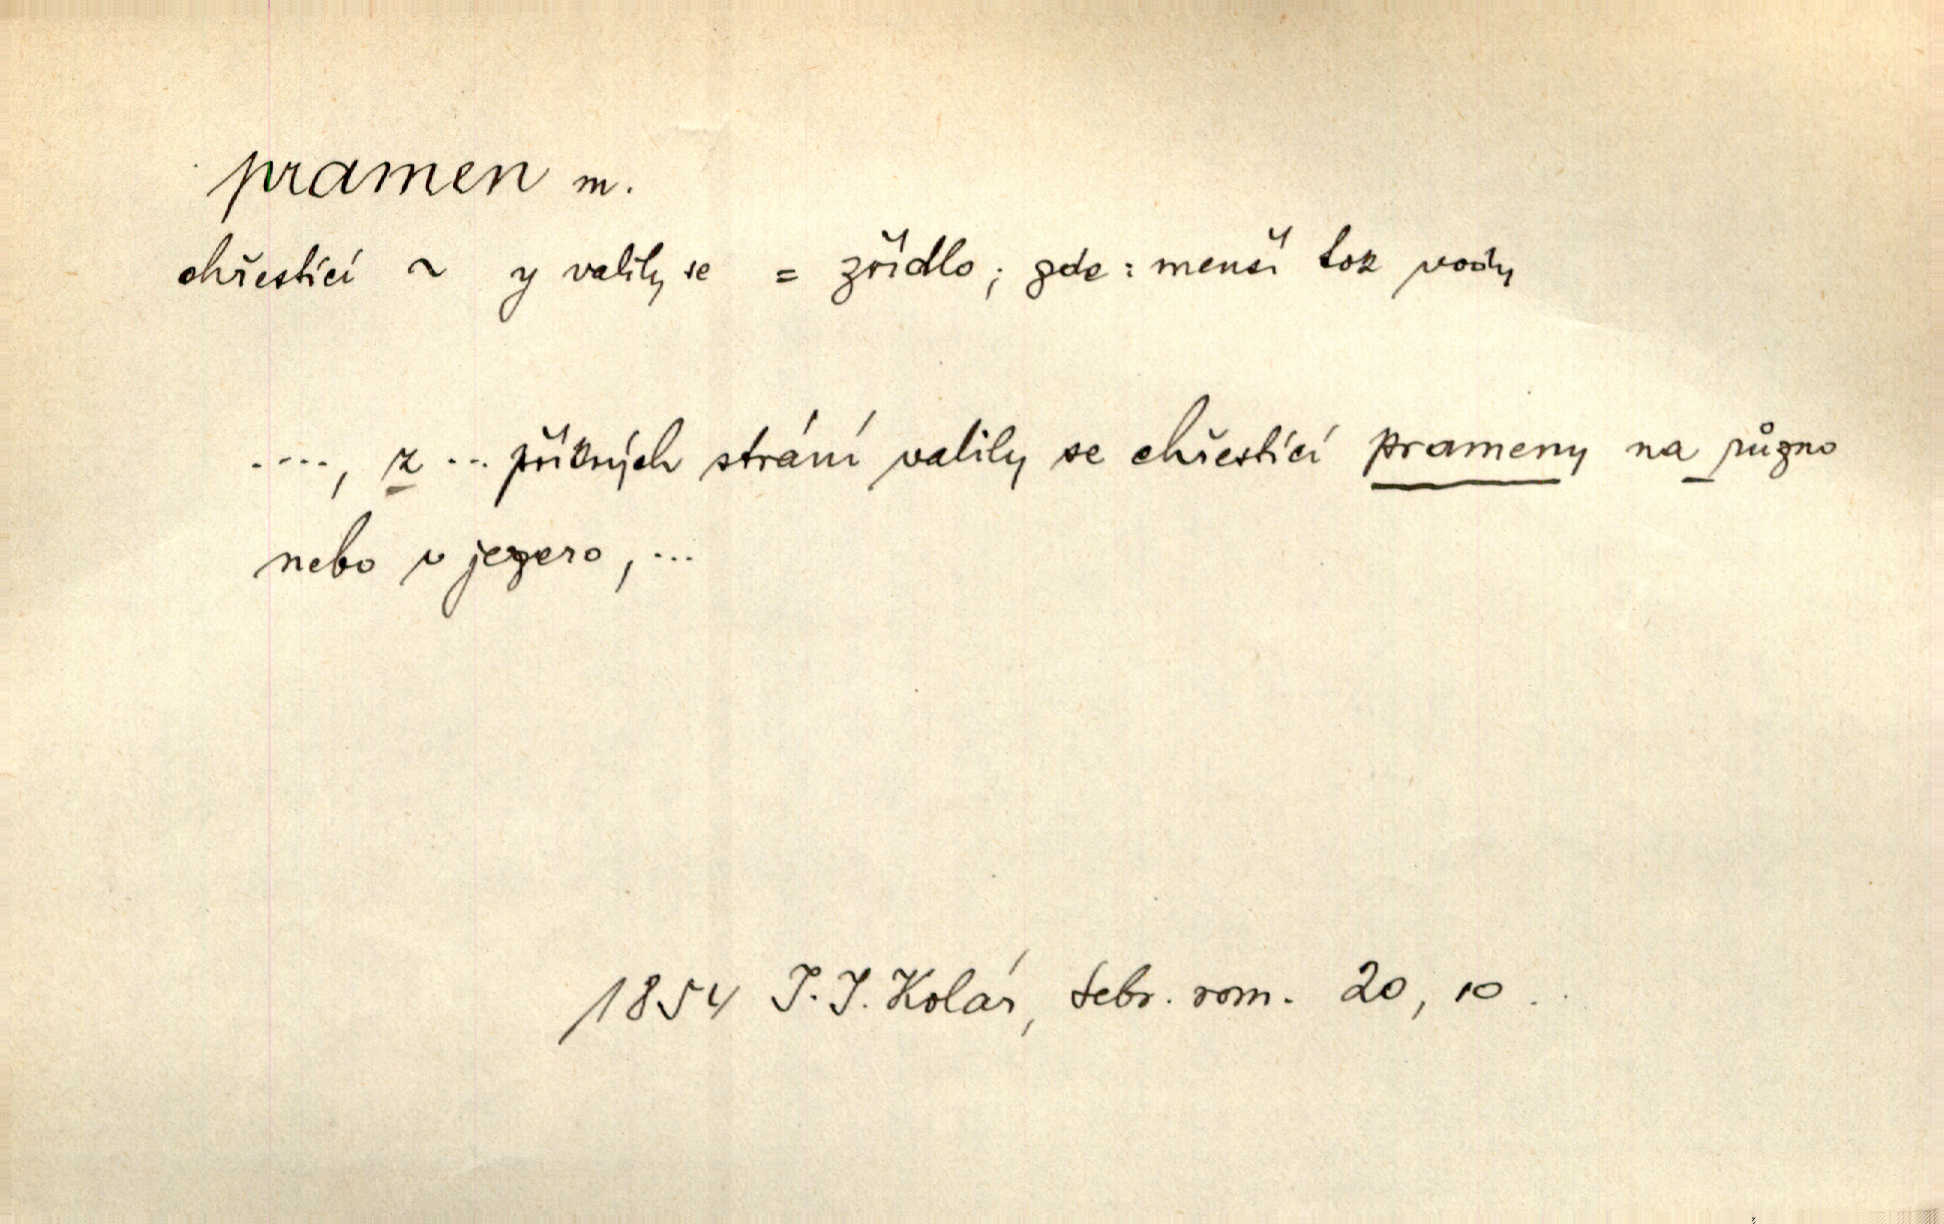 pramen m.
chřestící ~ y valily se = zřídlo; zde: menší tok vody
...., z ... příkrých strání valily se chřestící prameny na
nebo v jezero, ...
1854 J. J. Kolár, Sebr. rom. 20, 10.